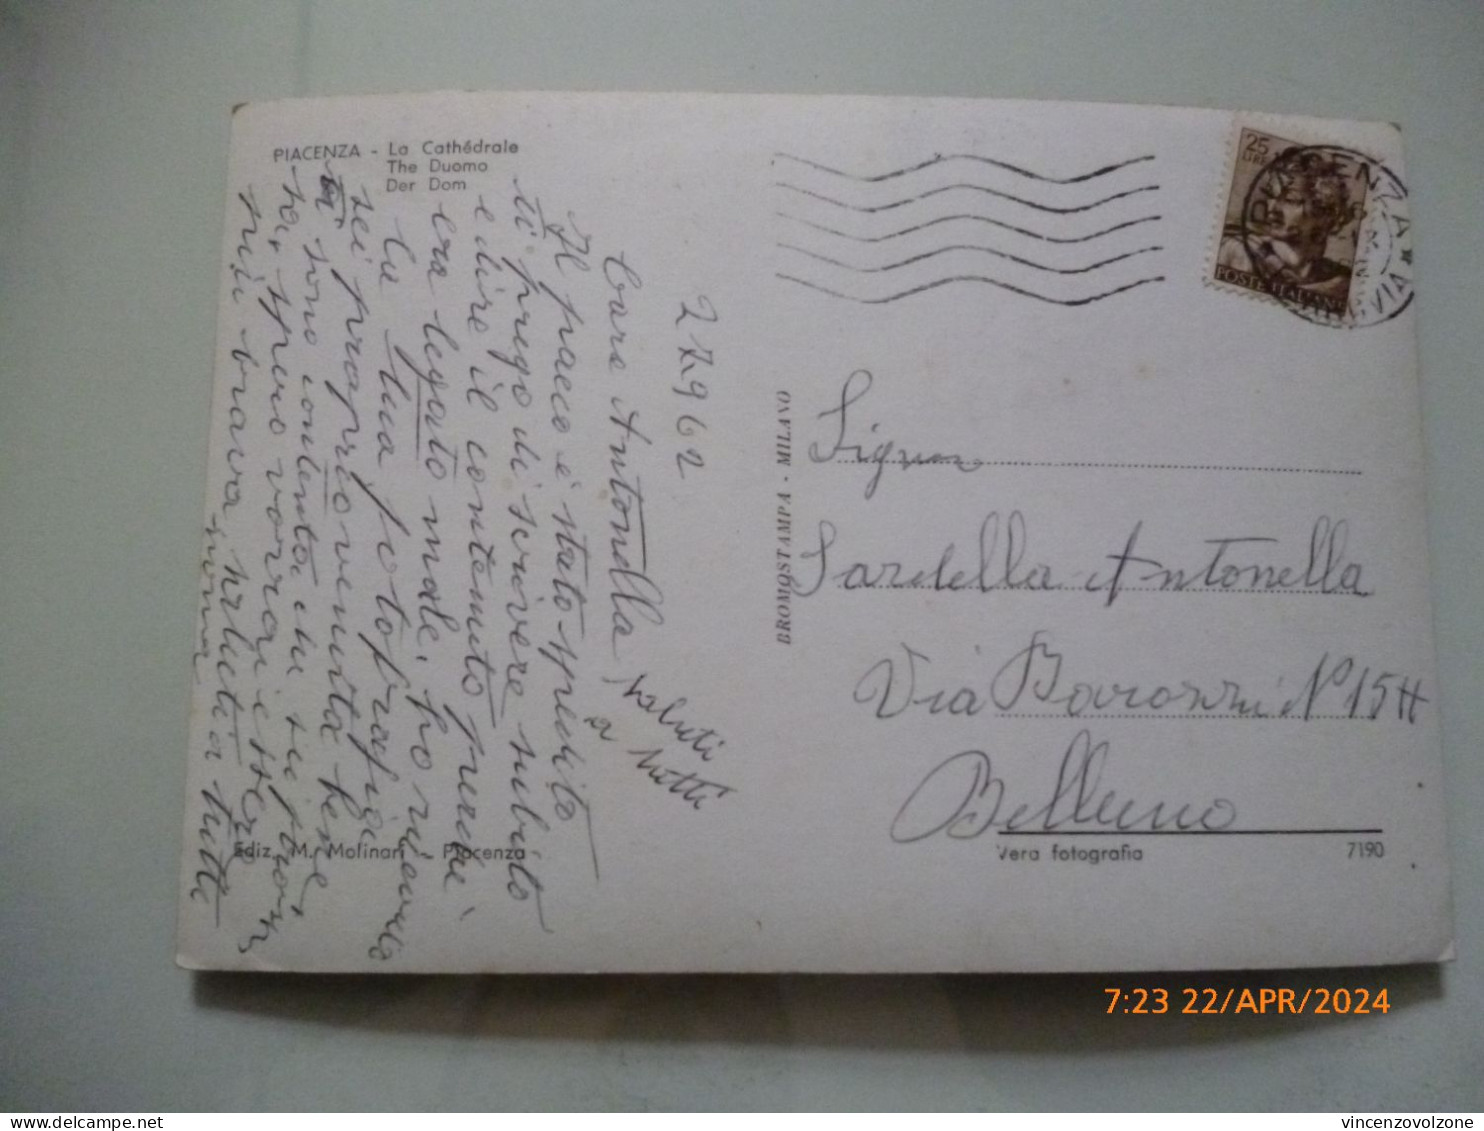 PIACENZA - La Cathédrale
The Duomo
Der Dom
2 7 962
Cara Antonella
Il pacco è stato spedito
ti prego di scrivere subito
e dire il contenuto perché
era legato male, ho ricevuto
la tua fotografia
sei proprio venuta bene
ti sono contenta che sei
ma, spero vorrai essere
più brava, saluta tutti
nonna
saluti
a tutti
Ediz. M. Molinari Piacenza
BROMOSTAMPA - MILANO
25
LIRE
POSTE ITALIANE
PIACENZA
Sardella Antonella
Via Barozzi N° 15
Belluno
Vera fotografia
7190
7:23 22/APR/2024
vincenzovolzone